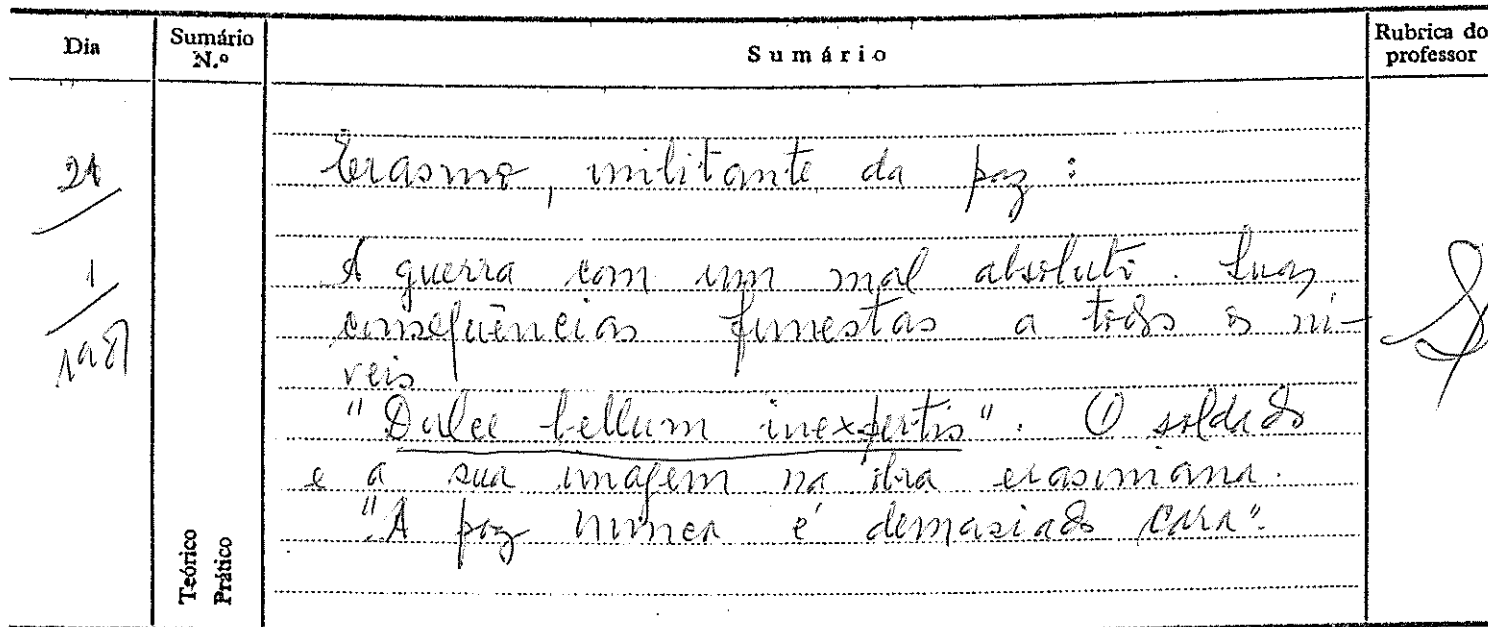 Dia
Sumário N.º
Sumário
Rubrica do professor
21
1
1987
Erasmo, militante da paz :
A guerra com um mal absoluto. Suas
consequências funestas a todos os ní-
veis
"Dulce bellum inexpertis". O soldado
e a sua imagem na obra erasmiana.
"A paz nunca é demasiado cara".
Teórico
Prático